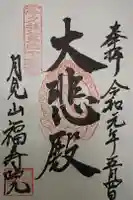 奉拝 令和元年五月四日
大悲殿
月見山福寿院